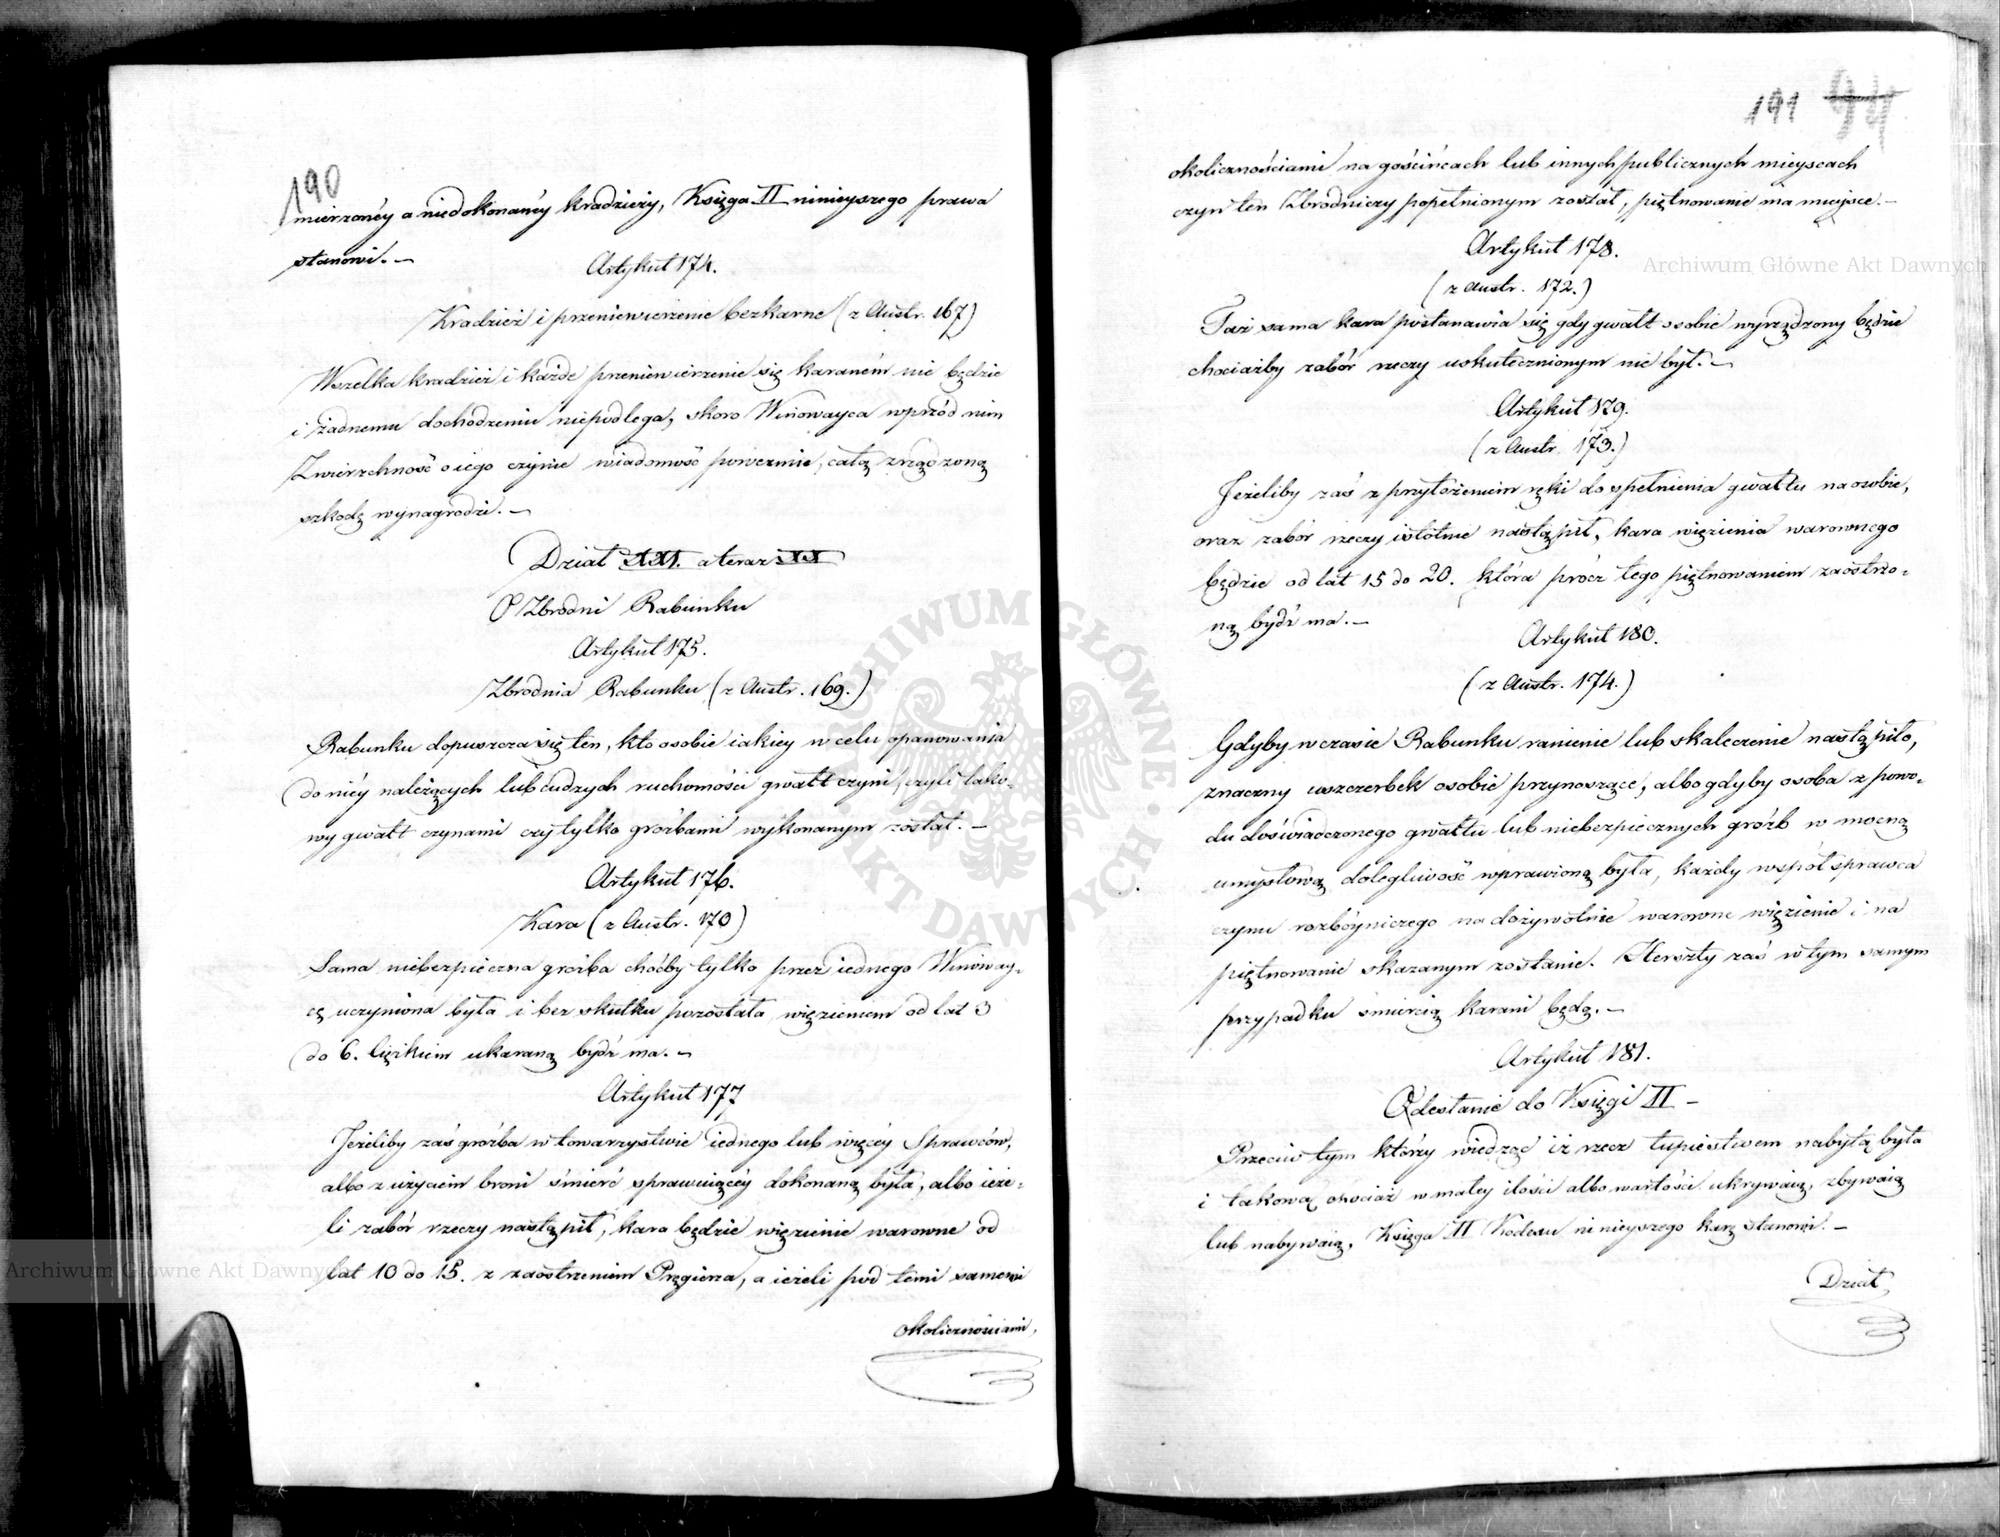 190
mierzonéy a niedokonanéy kradzieży, Księga II ninieyszego prawa
stanowi. –
Artykuł 174.
Kradzież i przeniewierzenie bezkarne (z Austr. 167)
Wszelka kradzież i każde przeniewierzenie się karaném nie będzie
i żadnemu dochodzeniu niepodlega, skoro Winowayca wprzód nim
Zwierzchność o iego czynie wiadomość poweźmie, całą zrządzoną
szkodę wynagrodzi. –
Dział XXI. a teraz XX
O Zbrodni Rabunku
Artykuł 175.
Zbrodnia Rabunku (z Austr. 169.)
Rabunku dopuszcza się ten, kto osobie iakiey w celu opanowania
do niéy należących lub cudzych ruchomości gwałt czyni, czyli tako-
wy gwałt czynami czy tylko groźbami wykonanym został. –
Artykuł 176.
Kara (z Austr. 170)
Sama niebezpieczna groźba choćby tylko przez iednego Winoway-
cę uczyniona była i bez skutku pozostała, więzieniem od lat 3
do 6. ciężkiem ukaraną bydź ma. –
Artykuł 177
Jeżeliby zaś groźba w towarzystwie iednego lub więcéy Sprawców,
albo z użyciem broni śmierć sprawuiącéy dokonaną była, albo ieże-
li zabór rzeczy nastąpił, kara będzie więzienie warowne od
lat 10 do 15. z zaostrzeniem Pręgierza, a ieżeli pod temi samemi
okolicznościami,
191 94
okolicznościami na gościńcach lub innych publicznych mieyscach
czyn ten Zbrodniczy popełnionym został, piętnowanie ma miejsce. –
Artykuł 178.
(z Austr. 172.)
Taż sama kara postanawia się gdy gwałt osobie wyrządzony będzie
chociażby zabór rzeczy uskutecznionym nie był. –
Artykuł 179.
(z Austr. 173.)
Jeżeliby zaś z przyłożeniem ręki do spełnienia gwałtu na osobie,
oraz zabór rzeczy istotnie nastąpił, kara więzienia warownego
będzie od lat 15 do 20. która prócz tego piętnowaniem zaostrzo-
ną bydź ma. –
Artykuł 180.
(z Austr. 174.)
Gdyby w czasie Rabunku ranienie lub skaleczenie nastąpiło,
znaczny uszczerbek osobie przynoszące, albo gdyby osoba z powo-
du doświadczonego gwałtu lub niebezpiecznych gróźb w mocną
umysłową dolegliwość wprawioną była, każdy współsprawca
czynu rozbóyniczego na dożywotnie warowne więzienie i na
piętnowanie skazanym zostanie. Herszty zaś w tym samym
przypadku śmiercią karani będą. –
Artykuł 181.
Odesłanie do Księgi II –
Przeciw tym którzy wiedząc iż rzecz łupiestwem nabytą była
i takową chociaż w małey ilości albo wartości ukrywaią, zbywaią
lub nabywaią, Księga II Kodexu ninieyszego karę stanowi. –
Dział
Archiwum Główne Akt Dawnych
Archiwum Główne Akt Dawnych
ARCHIWUM GŁÓWNE AKT DAWNYCH